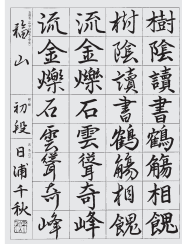 樹陰讀書鶴觴相餽
樹陰讀書鶴觴相餽
流金爍石雲聳奇峰
流金爍石雲聳奇峰
福山 初段 日浦千秋